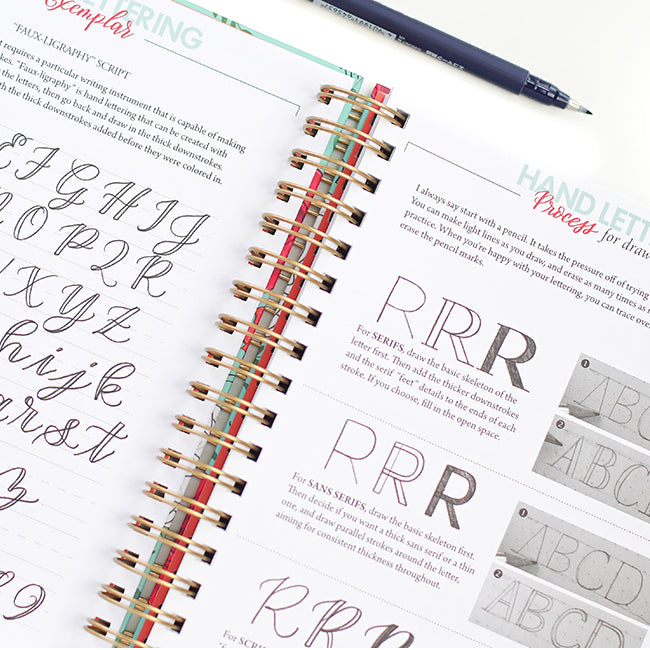 LETTERING
Exemplar
"FAUX-LIGRAPHY" SCRIPT
requires a particular writing instrument that is capable of making
"Faux-ligraphy" is hand lettering that can be created with
the letters, then go back and draw in the thick downstrokes.
with the thick downstrokes added before they were colored in.
E F G H I J
O P Q R
V W X Y Z
h i j k
r s t
z
9
HAND LETT
Process for draw
I always say start with a pencil. It takes the pressure off of trying
You can make light lines as you draw, and erase as many times as
practice. When you're happy with your lettering, you can trace over
erase the pencil marks.
R R R
For SERIFS, draw the basic skeleton of the
letter first. Then add the thicker downstrokes
and the serif "feet" details to the ends of each
stroke. If you choose, fill in the open space.
1
ABC
2
ABCD
R R R
For SANS SERIFS, draw the basic skeleton first.
Then decide if you want a thick sans serif or a thin
one, and draw parallel strokes around the letter,
aiming for consistent thickness throughout.
1
ABCD
2
ABCD
R R R
For SCR